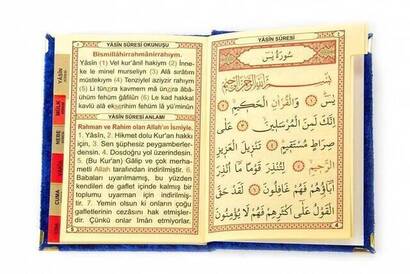 YÂSİN SÛRESİ OKUNUŞU
Bismillâhirrahmânirrahıym.
Yâsîn (1) Vel kur'ânil hakiym (2) İnne-
ke le minel murseliyn (3) Alâ sırâtım
müstekıym (4) Tenziylel aziyzir rahıym
(5) Li tünzira kavmem mâ ünzira âbâ-
ühüm fehüm ğâfilûn (6) Le kad hakkal
kavlü alâ ekserihim fehüm lâ yü'minûn
YÂSİN SÛRESİ ANLAMI
Rahman ve Rahim olan Allah'ın İsmiyle.
1. Yâsîn, 2. Hikmet dolu Kur'an hakkı
için, 3. Sen şüphesiz peygamberler-
densin. 4. Dosdoğru yol üzerindesin.
5. (Bu Kur'an) Gâlip ve çok merha-
metli Allah tarafından indirilmiştir. 6.
Babaları uyarılmamış, bu yüzden
kendileri de gaflet içinde kalmış bir
toplumu uyarman için indirilmiş-
tir. 7. Yemin olsun ki onların çoğu
gafletlerinin cezasını hak etmişler-
dir. Çünkü onlar İmân etmiyorlar.
5
YÂSİN
MÜLK
NEBE
CUMA
YÂSİN SÛRESİ
سُورَةُ يٰسٓ
بِسْمِ اللّٰهِ الرَّحْمٰنِ الرَّحِيمِ
يٰسٓ ١ وَالْقُرْاٰنِ الْحَكِيمِ ٢
اِنَّكَ لَمِنَ الْمُرْسَلِينَ ٣ عَلٰى
صِرَاطٍ مُسْتَقِيمٍ ٤ تَنْزِيلَ الْعَزِيزِ
الرَّحِيمِ ٥ لِتُنْذِرَ قَوْمًا مَٓا اُنْذِرَ
اٰبَٓاؤُهُمْ فَهُمْ غَافِلُونَ ٦ لَقَدْ حَقَّ
الْقَوْلُ عَلٰٓى اَكْثَرِهِمْ فَهُمْ لَا يُؤْمِنُونَ
4